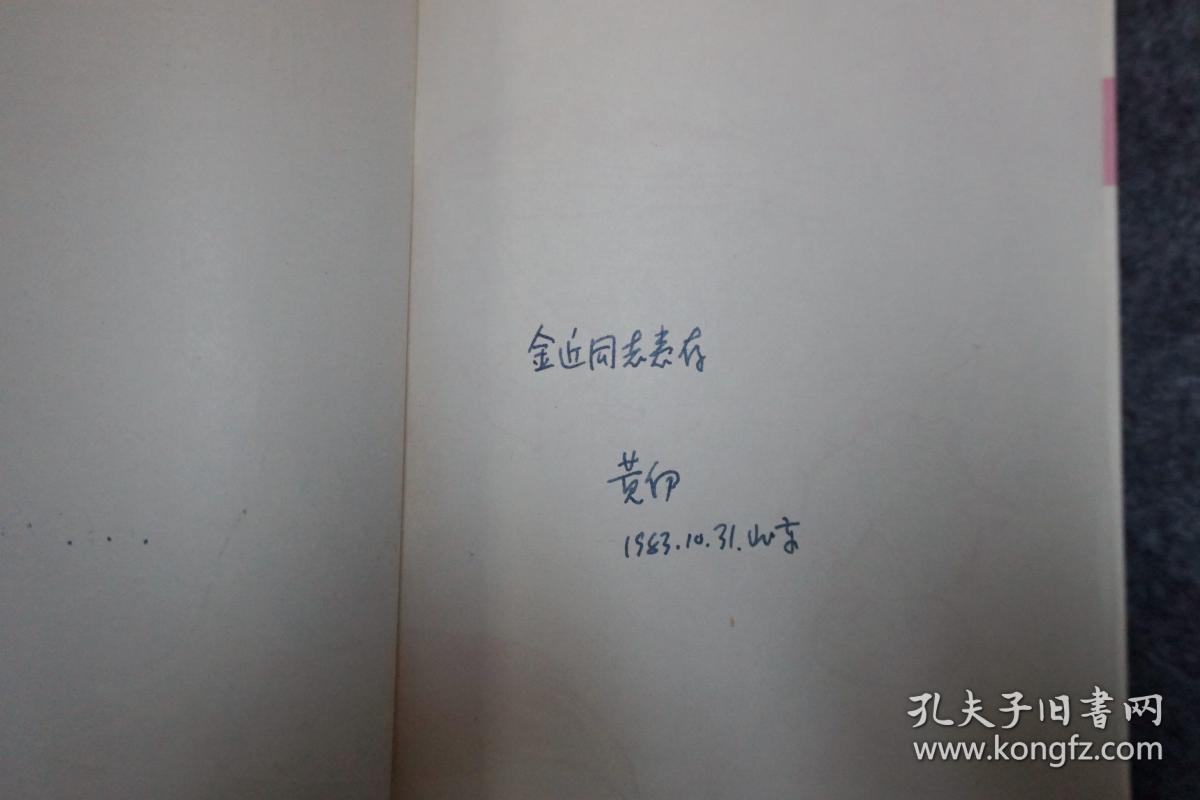 金近同志惠存
黄伊
1983.10.31.北京
孔夫子旧書网
www.kongfz.com